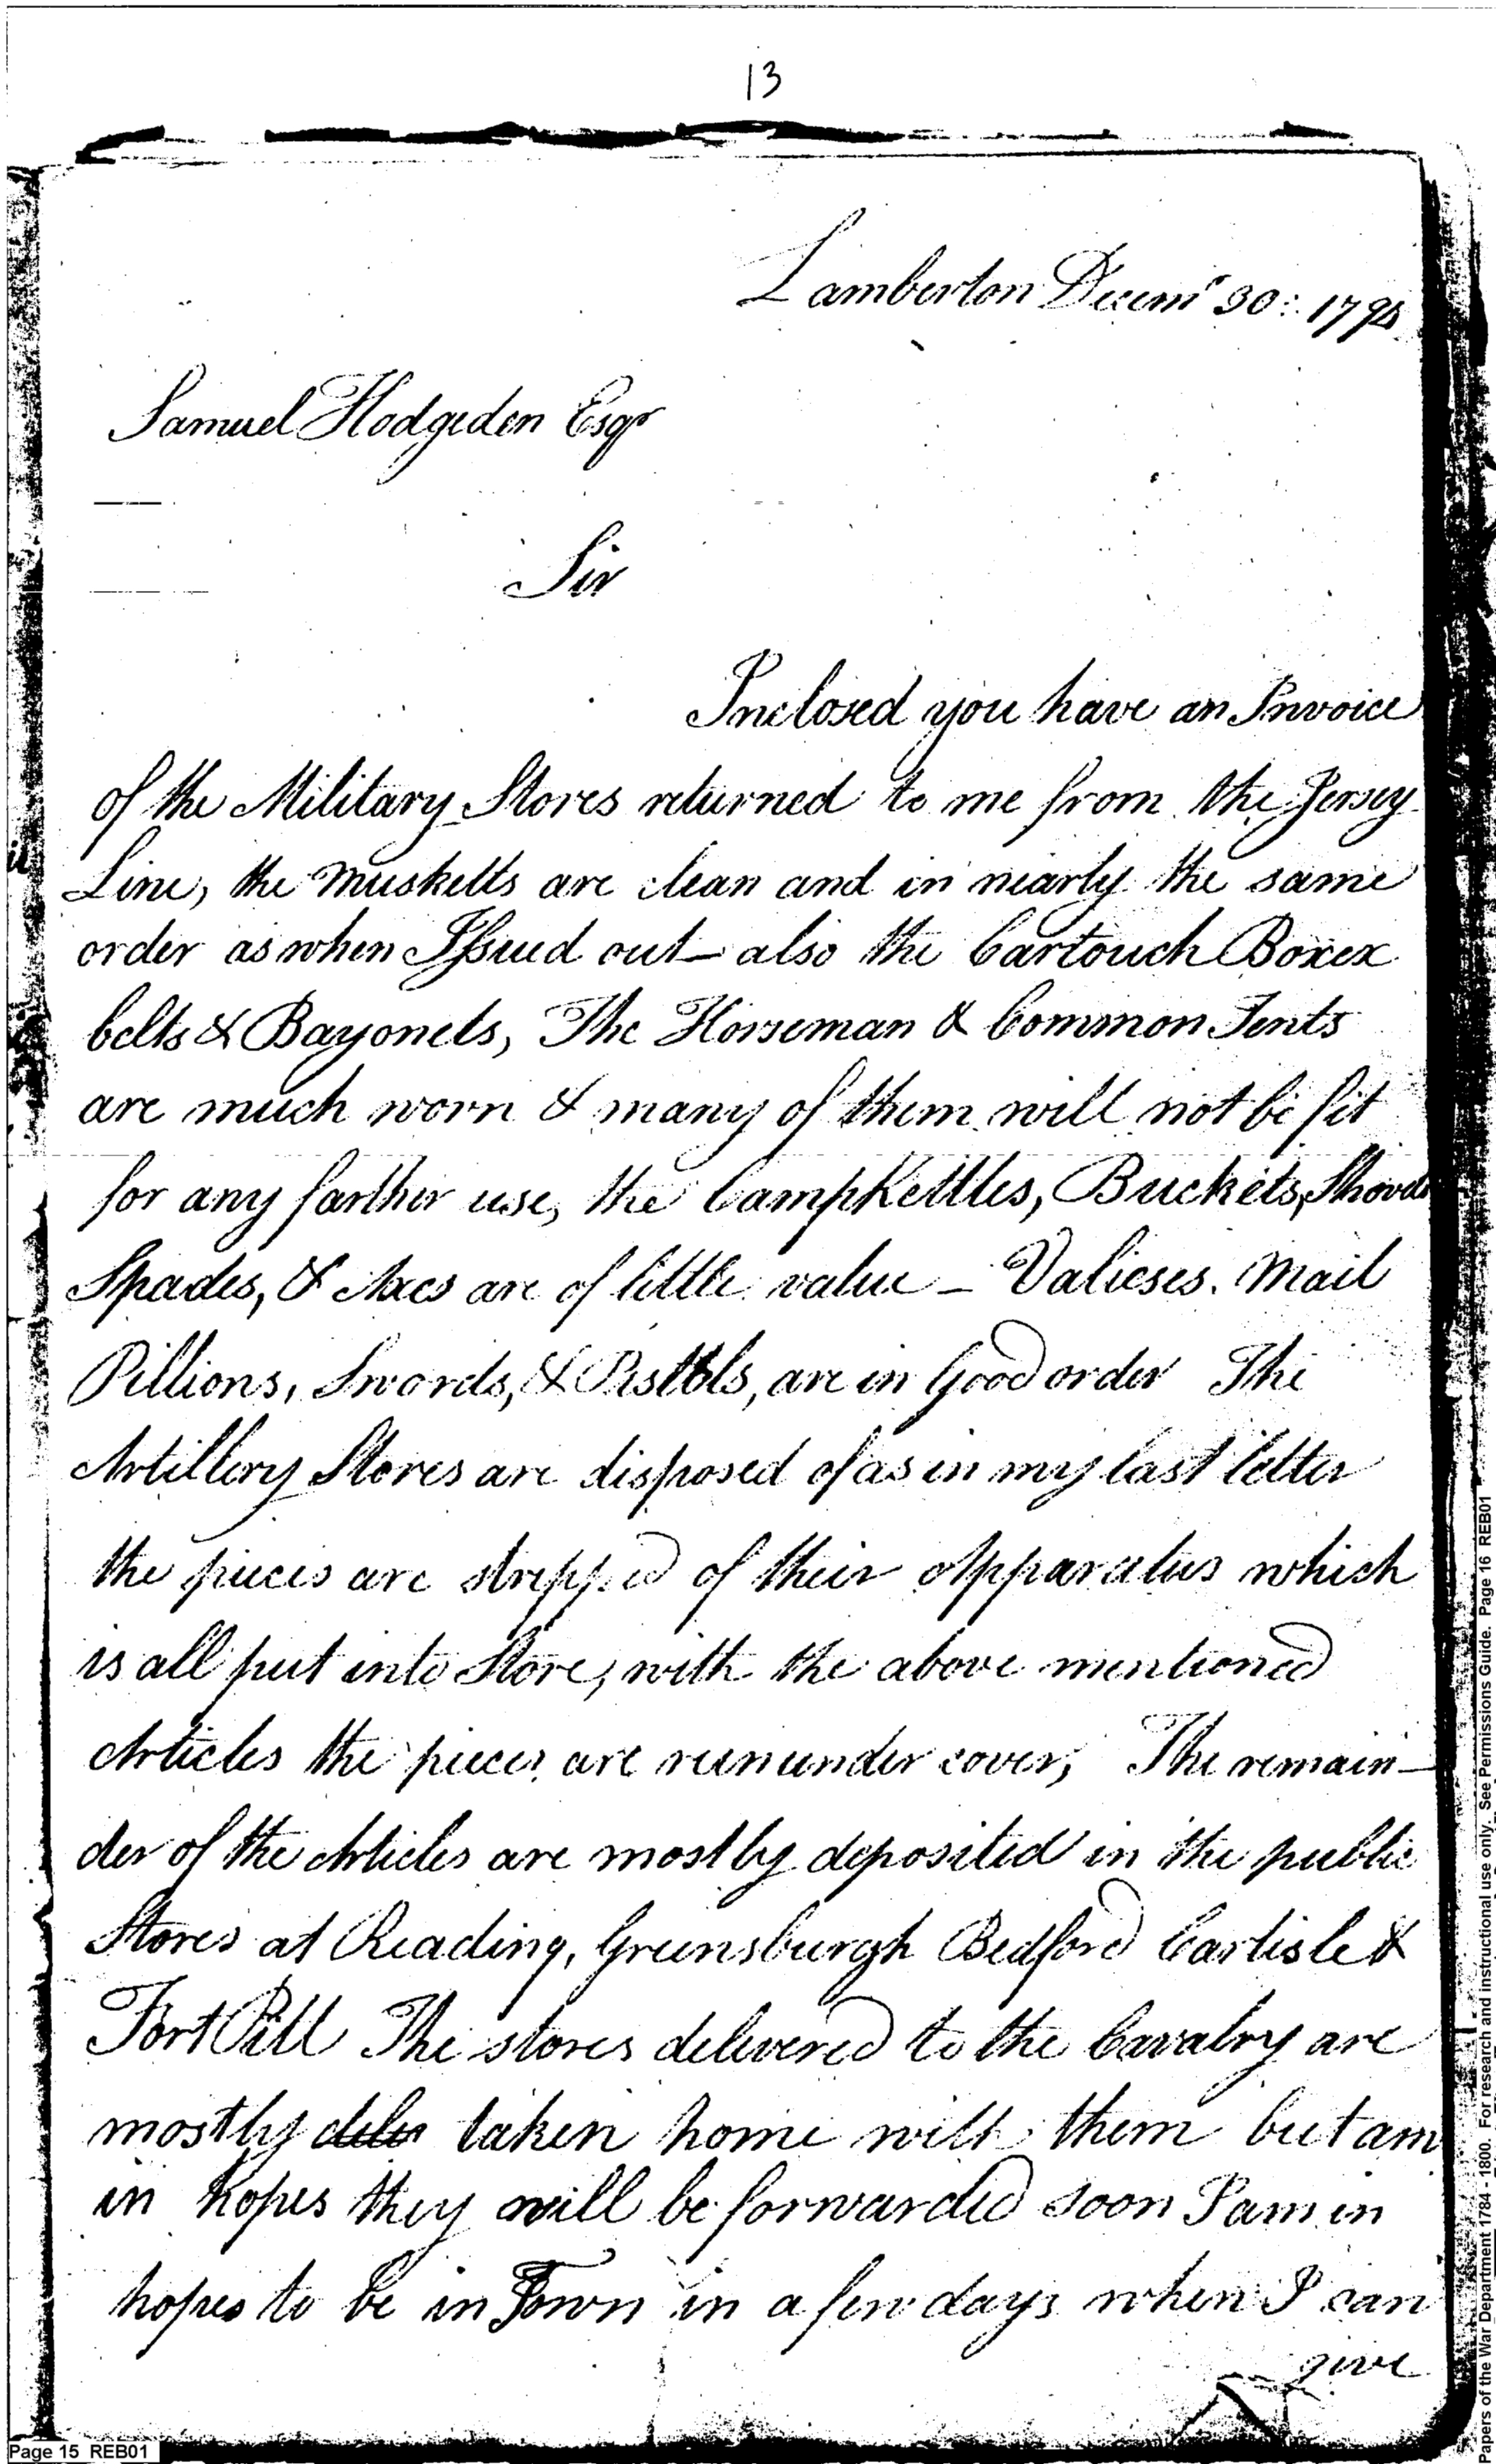 13
Lamberton Decemr 30: 1794
Samuel Hodgsden Esqr
Sir
Inclosed you have an Invoice
of the Military Stores returned to me from the Jersey
Line, the Musketts are clean and in nearly the same
order as when Issued out — also the Cartouch Boxex
belts & Bayonets, The Horseman & Common Tents
are much worn & many of them will not be fit
for any farther use, the CampKettles, Buckets, Shovels
Spades, & Axes are of little value — Valieses. Mail
Pillions, Swords, & Pistols, are in Good order The
Artillery Stores are disposed of as in my last letter
the pieces are stripped of their Apparatus which
is all put into Store, with the above mentioned
Articles the pieces are run under cover, The remain-
der of the Articles are mostly deposited in the public
Stores at Reading, Greensburgh Bedford Carlisle &
Fort Pitt The stores delivered to the Cavalry are
mostly deler taken home with them but am
in hopes they will be forwarded soon I am in
hopes to be in Town in a few days when I can
give
Page 15 REB01
Papers of the War Department 1784 - 1800. For research and instructional use only. See Permissions Guide. Page 16 REB01